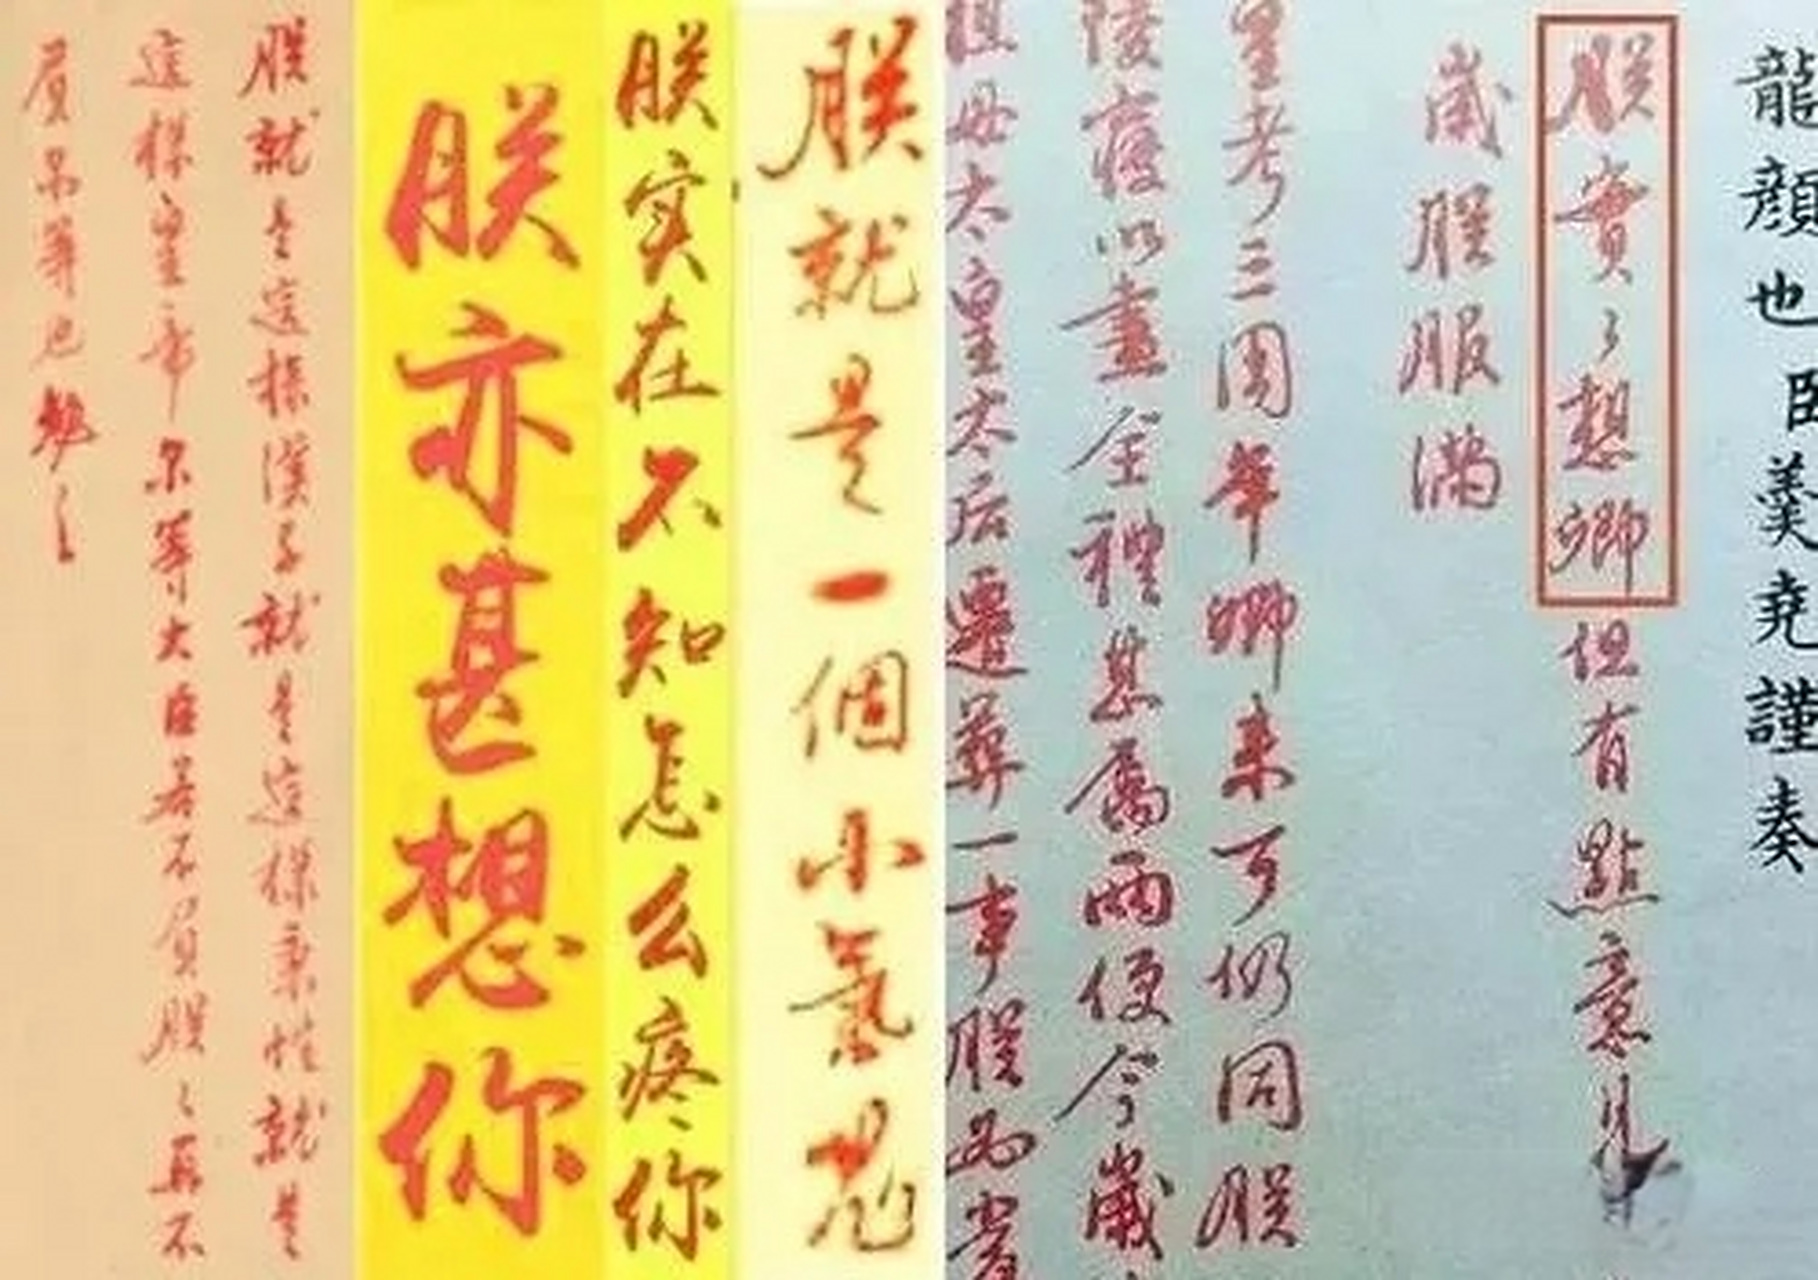 龍顏也臣羹堯謹奏
朕實〻想卿但有點意見
歲朕服滿
皇考三周年卿來可仍同朕
陵寢以盡全禮甚屬兩便今歲
祖母太皇太后遷葬一事朕為
朕就是一個小氣鬼
朕实在不知怎么疼你
朕亦甚想你
朕就是這樣漢子就是這樣秉性就是
這樣皇帝尔等大臣若不負朕〻再不
負尔等也勉之